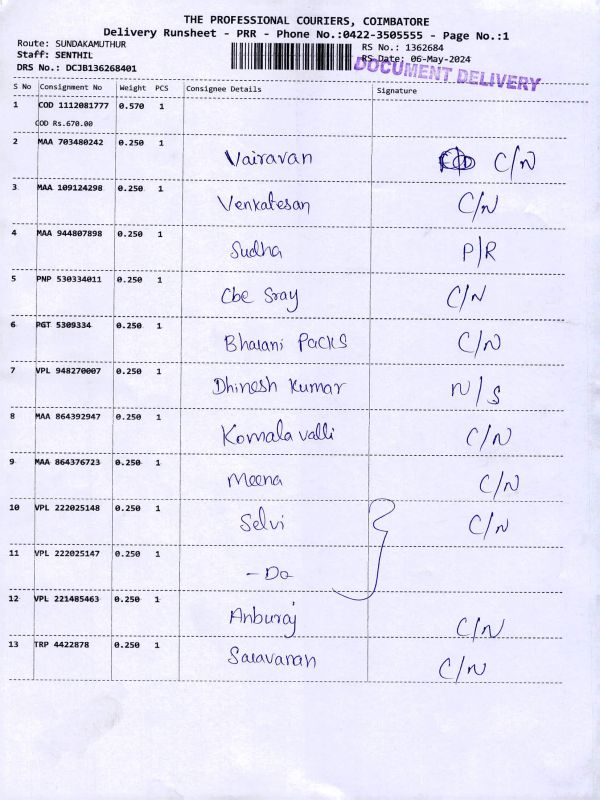 THE PROFESSIONAL COURIERS, COIMBATORE
Delivery Runsheet - PRR - Phone No.:0422-3505555 - Page No.:1
Route: SUNDAKAMUTHUR
Staff: SENTHIL
DRS No.: DCJB136268401
RS No.: 1362684
RS Date: 06-May-2024
DOCUMENT DELIVERY
S No Consignment No Weight PCS Consignee Details Signature
1 COD 1112081777 0.570 1
COD Rs.670.00
2 MAA 703480242 0.250 1 Vairavan C/N
3 MAA 109124298 0.250 1 Venkatesan C/N
4 MAA 944807898 0.250 1 Sudha P/R
5 PNP 530334011 0.250 1 Cbe Sray C/N
6 PGT 5309334 0.250 1 Bharani Packs C/N
7 VPL 948270007 0.250 1 Dhinesh Kumar N/S
8 MAA 864392947 0.250 1 Komala valli C/N
9 MAA 864376723 0.250 1 Meena C/N
10 VPL 222025148 0.250 1 Selvi C/N
11 VPL 222025147 0.250 1 - Do
12 VPL 221485463 0.250 1 Anburaj C/N
13 TRP 4422878 0.250 1 Saravanan C/N